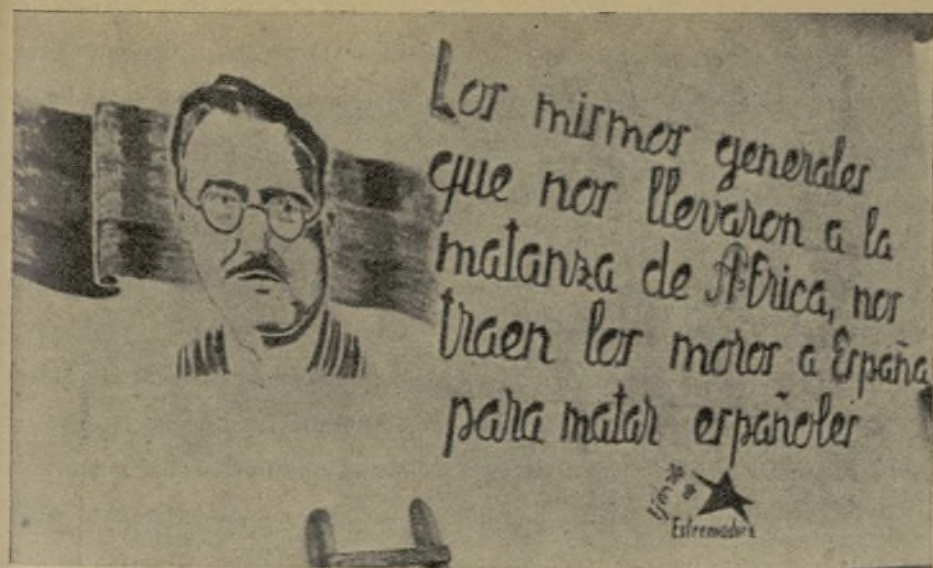 Los mismos generales
que nos llevaron a la
matanza de África, nos
traen los moros a España
para matar españoles
Estremadura